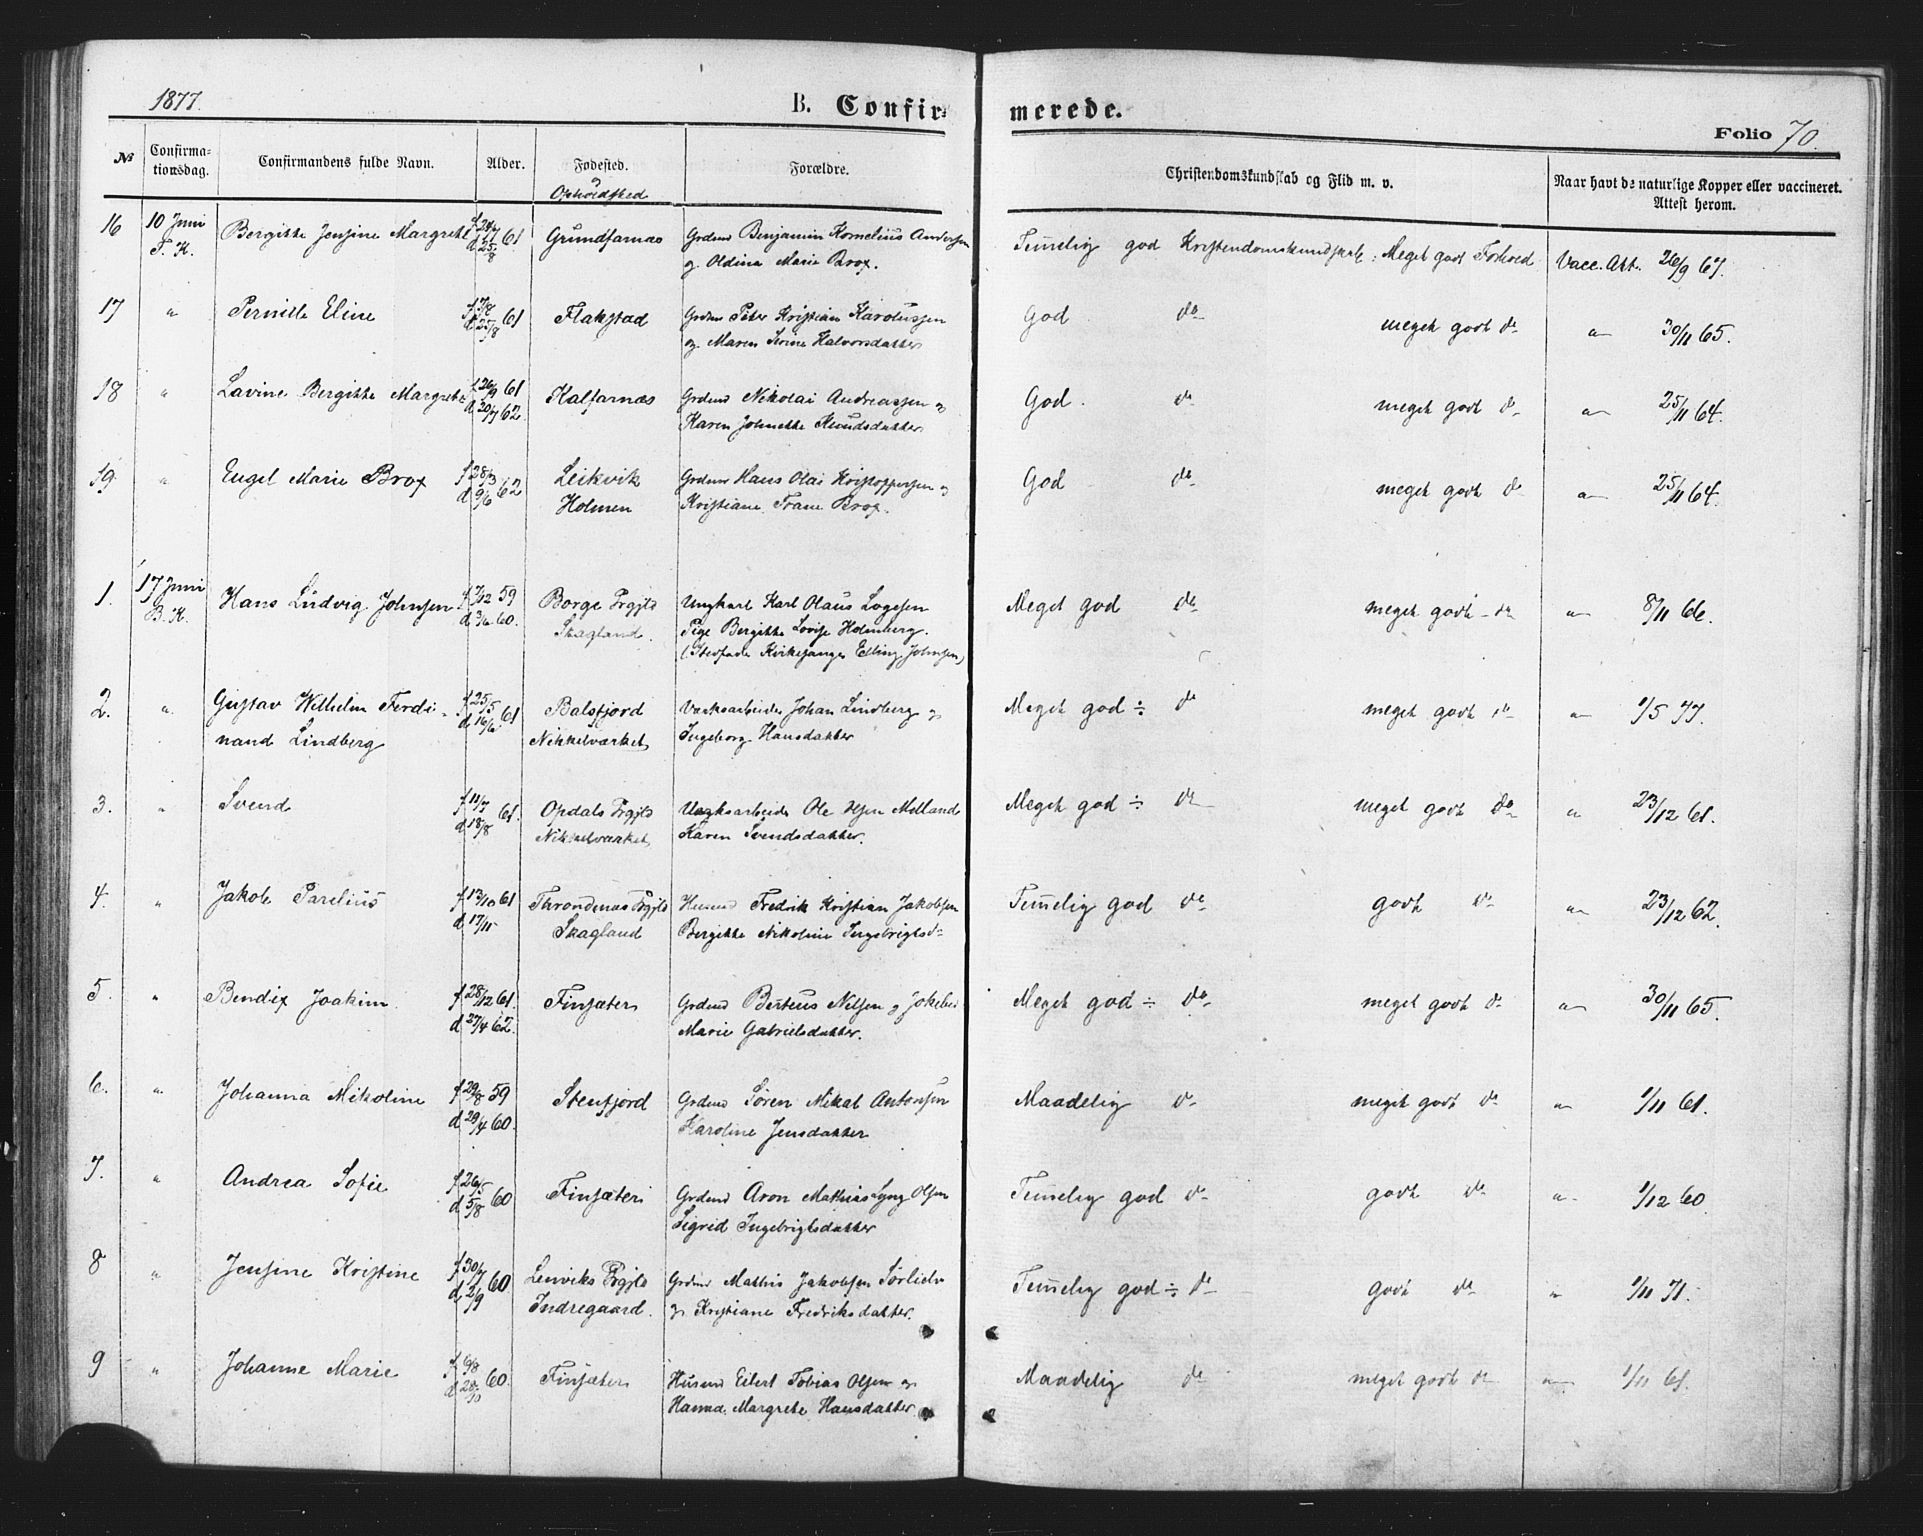 1877.
B. Confir-
merede.
Folio 70.
No
Confirma-
tionsdag.
Confirmandens fulde Navn.
Alder.
Fødested.
Forældre.
Christendomskundskab og Flid m. v.
Naar havt de naturlige Kopper eller vaccineret.
Attest herom.
& Opholdssted
16 10 Juni Bergitte Jensine Margrethe 61 Grundfarnæs Grdmd Benjamin Kornelius Andersen Temelig god Kristendomskundskab: Meget godt Forhold Vacc. Att. 26/9 67.
F. K. d og Oldina Marie Brox.
17 " Pernille Eline f 61 Flakstad Grdmd Peter Kristian Karolussen God do meget godt do " 30/11 65.
d 25/8 og Maren Halvorsdatter
18 " Lavine Bergitte Margrete f 26/9 61 Kalfarnæs Grdmd Nikolai Andreassen og God do meget godt do " 25/11 64.
d 30/7 62. Karen Johnette Knudsdatter
19 " Engel Marie Brox f 28/3 62 Leikvik Grdmd Hans Olai Kristoffersen og God do meget godt do " 25/11 64.
d 9/6 Holmen Kristiane Trane Brox.
1. 17 Juni Hans Ludvig Johnsen f 7/12 59 Borge Prgjld Ungkarl Karl Olaus Meget god do meget godt do " 8/11 66.
B. K. d 3/6 60. Skagland. Pige Bergitte Lovise Holmberg.
(Stedfader Kirkesanger Elling Johnsen)
2. " Gustav Wilhelm Ferdi- f 25/5 61 Balsfjord Værksarbeider Johan Lindberg og Meget god ÷ do meget godt do " 1/5 77.
nand Lindberg d 16/6 Nikkelværket Ingeborg Hansdatter
3. " Svend f 11/7 61. Opdals Prgjld Værksarbeider Ole Olsen Melland Meget god ÷ do meget godt do " 23/12 61.
d 18/8 Nikkelværket Karen Svendsdatter.
4. " Jakob Parelius f 13/10 61 Throndenæs Prgjld Husmd Fredrik Kristian Jakobsen Temelig god do godt do " 23/12 62.
d 17/11 Skagland Bergitte Nikoline Ingebrigtsdr
5. " Bendix Joakim f 28/12 61. Finsæter Grdmd Berteus Nilsen og Meget god ÷ do meget godt do " 30/11 65.
d 27/4 62. Marie Gabrielsdatter.
6. " Johanna Nikoline f 29/8 59 Stenfjord Grdmd Søren Mikal Antonsen Maadelig do meget godt do " 1/11 61.
d 29/4 60. Karoline Jensdatter
7. " Andrea Sofie f 26/5 60 Finsæter Grdmd Aron Mathias Lyng Olsen Temelig god do godt do " 1/12 60
d 5/8 Sigrid Ingebrigtsdatter
8 " Jensine Kristine f 30/7 60 Lenviks Prgjld Grdmd Mathis Jakobsen Sørlielv Temelig god ÷ do godt do " 1/11 71.
d 2/9 Indregaard. og Kristiane Fredriksdatter.
9 " Johanne Marie f 6/8 60. Finsæter Husmd Eilert Tobias Olsen og Maadelig do meget godt do " 1/11 61.
d Hanna Margrete Hansdatter.